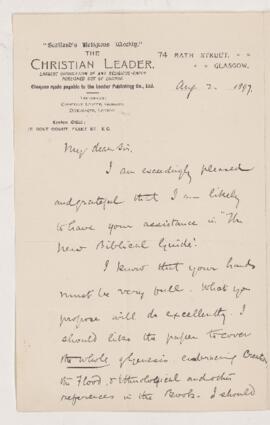 "Scotland's Religious Weekly."
THE
CHRISTIAN LEADER,
LARGEST CIRCULATION OF ANY RELIGIOUS PAPER
PUBLISHED OUT OF LONDON.
Cheques made payable to the Leader Publishing Co., Ltd.
74 BATH STREET,
GLASGOW.
Aug 2. 1897.
London Office:
FLEET ST. E.C.
My dear Sir,
I am exceedingly pleased
and grateful that I am likely
to have your assistance in "The
New Biblical Guide".
I know that your hands
must be very full. What you
propose will do excellently. I
should like the paper to cover
the whole of genesis, embracing Creation
the Flood, & ethnological and other
references in the Book. I should